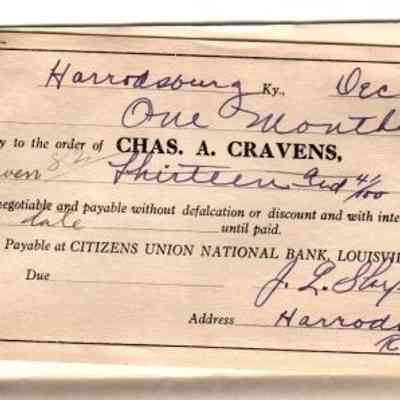 Harrodsburg Ky., Dec
One Month
y to the order of CHAS. A. CRAVENS,
Thirteen and 41/100
negotiable and payable without defalcation or discount and with inte
date until paid.
Payable at CITIZENS UNION NATIONAL BANK, LOUISVIL
Due J. L.
Address Harrods